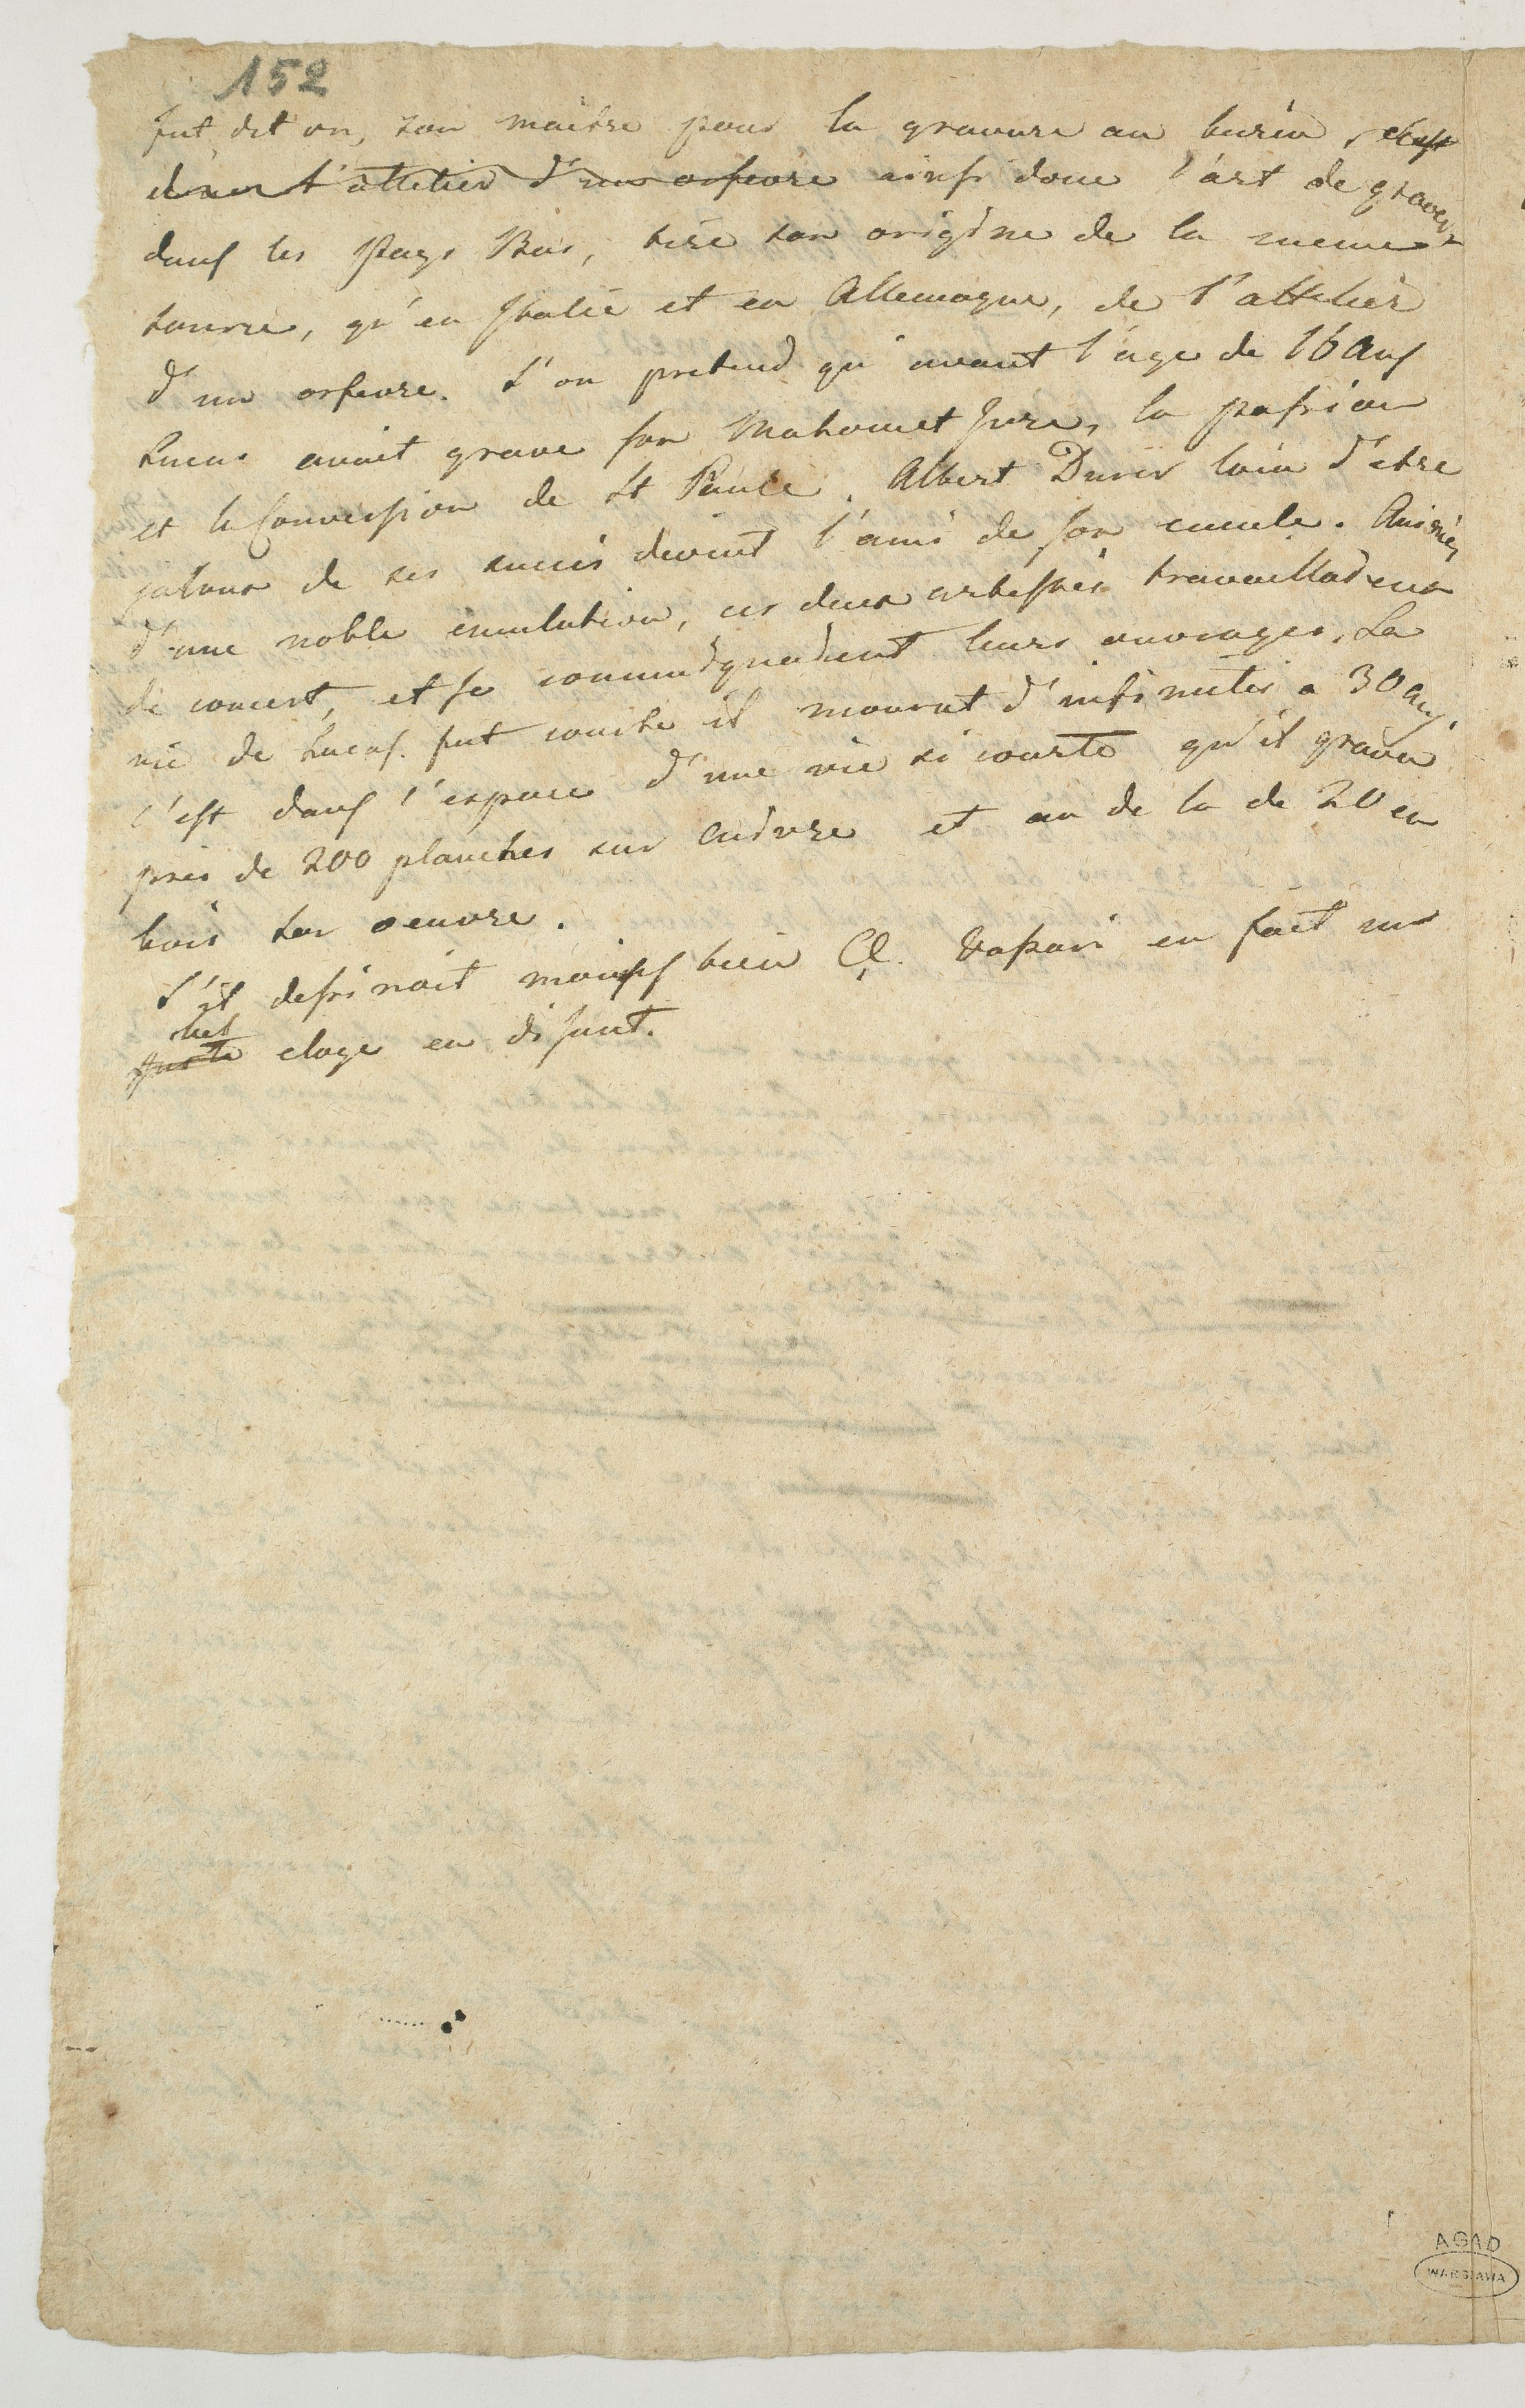 152
fut dit on, son maitre pour la gravure au burin, c'est
dans l'attelier d'un orfevre ainsi donc l'art de graver
dans les Pays Bas, tire son origine de la meme
source, qu'en Italie et en Allemagne, de l'attelier
d'un orfevre. L'on pretend qu'avant l'age de 16 ans
Lucas avait grave son Mahomet Ivre, la passion
et la Conversion de St Paule. Albert Durer loin d'etre
jaloux de ses succès devint l'ami de son emule. Animés
d'une noble emulation, ces deux artistes travailloient
de concert, et se communiquoient leurs ouvrages. La
vie de Lucas. fut courte il mourut d'infirmités a 30 ans
c'est dans l'espace d'une vie si courte qu'il grava
près de 200 planches sur cuivre et au de la de 20 en
bois son oeuvre.
S'il dessinoit moins bien Q. Vasari en fait un
bel
juste eloge en disant.
AGAD
WARSZAWA